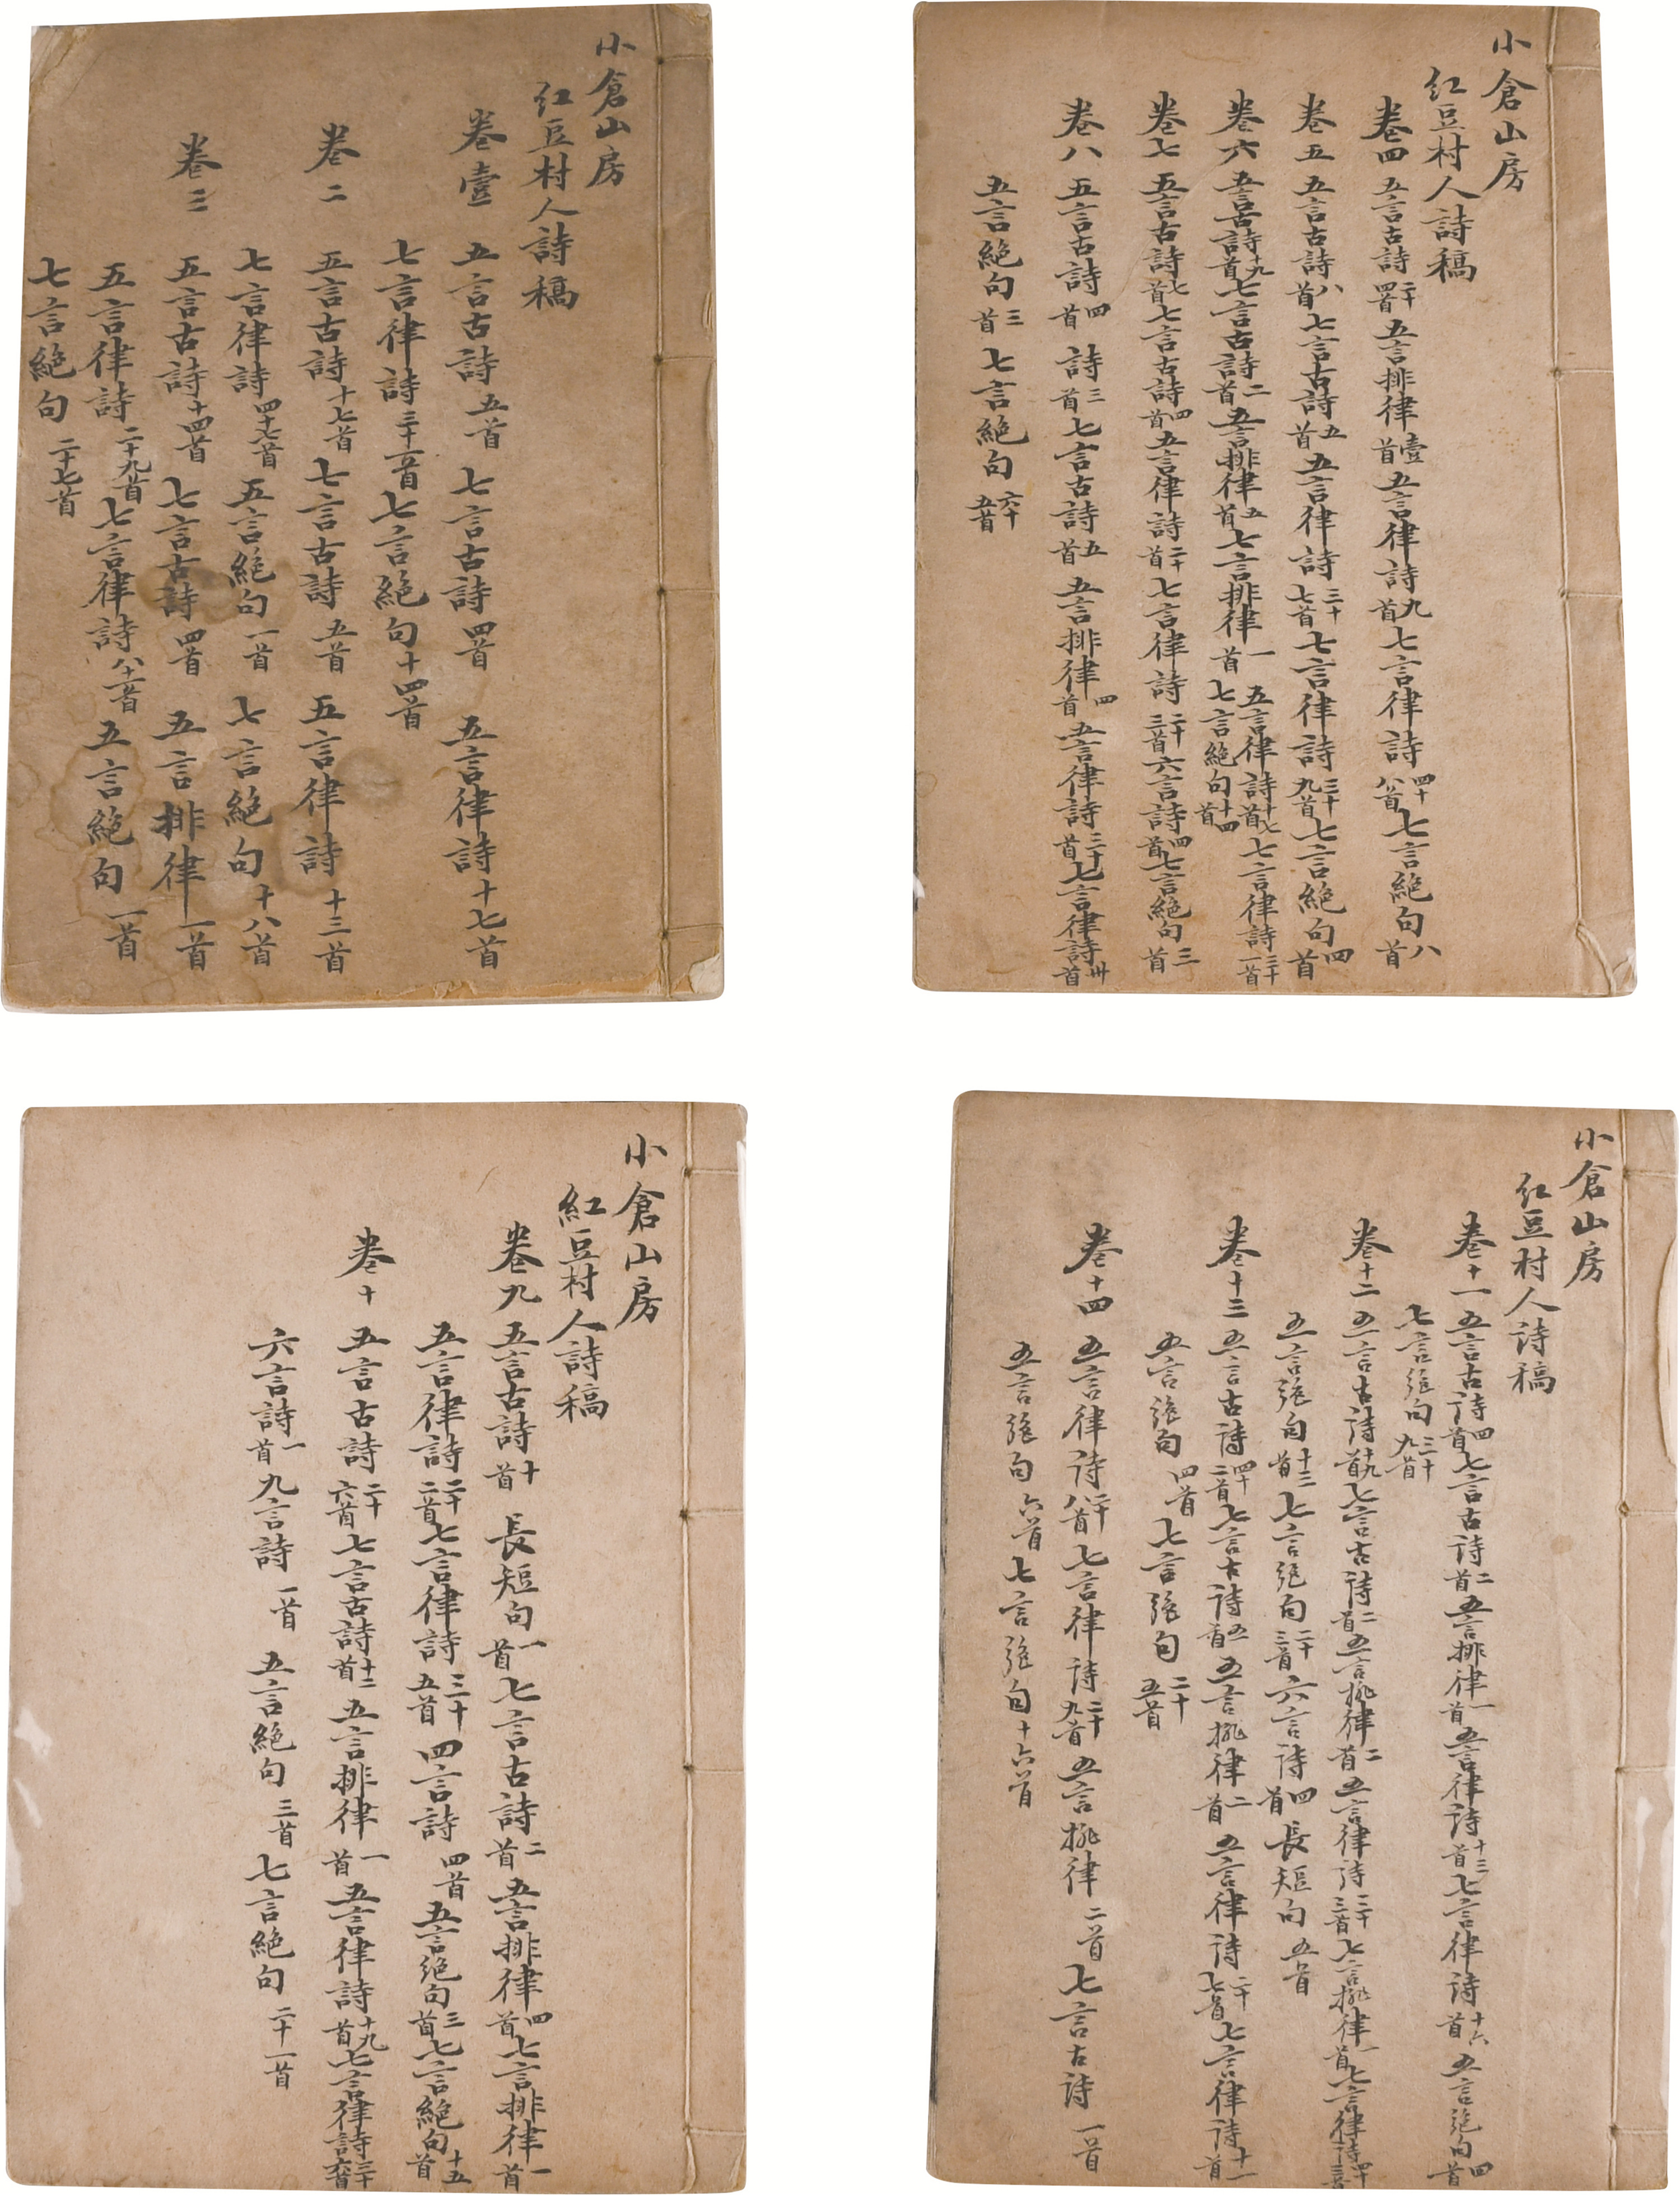 小倉山房
紅豆村人詩稿
卷壹 五言古詩五首 七言古詩四首 五言律詩十七首
七言律詩三十一首 七言絕句十四首
卷二 五言古詩十七首 七言古詩五首 五言律詩十三首
七言律詩四十七首 五言絕句一首 七言絕句十八首
卷三 五言古詩十四首 七言古詩四首 五言排律一首
五言律詩二十九首 七言律詩八十一首 五言絕句一首
七言絕句二十七首
小倉山房
紅豆村人詩稿
卷四 五言古詩二十四首 五言排律壹首 五言律詩九首 七言律詩四十八首 七言絕句八首
卷五 五言古詩八首 七言古詩五首 五言律詩三十七首 七言律詩三十九首 七言絕句四首
卷六 五言古詩十九首 七言古詩二首 五言排律五首 七言排律一首 五言律詩十七首 七言律詩三十一首
七言絕句十四首
卷七 五言古詩七首 七言古詩四首 五言律詩二十首 七言律詩二十三首 六言詩四首 七言絕句三首
卷八 五言古詩四首 詩三首 七言古詩五首 五言排律四首 五言律詩三十首 七言律詩卅首
五言絕句三首 七言絕句六十五首
小倉山房
紅豆村人詩稿
卷九 五言古詩十首 長短句一首 七言古詩二首 五言排律四首 七言排律一首
五言律詩二十二首 七言律詩三十五首 四言詩四首 五言绝句三首 七言絕句十五首
卷十 五言古詩二十六首 七言古詩十二首 五言排律一首 五言律詩十九首 七言律詩三十六首
六言詩一首 九言詩一首 五言絕句三首 七言絕句二十一首
小倉山房
紅豆村人诗稿
卷十一 五言古诗四首 七言古诗二首 五言排律一首 五言律诗十三首 七言律诗十六首 五言绝句四首
七言绝句三十九首
卷十二 五言古诗十九首 七言古诗二首 五言排律二首 五言律诗三十三首 七言排律一首 七言律诗四十三首
五言绝句十二首 七言绝句二十三首 六言诗四首 長短句五首
卷十三 五言古诗四十二首 七言古诗五首 五言排律二首 五言律诗二十七首 七言律诗十一首
五言绝句四首 七言绝句二十五首
卷十四 五言律诗二十八首 七言律诗二十九首 五言排律二首 七言古诗一首
五言绝句六首 七言绝句十六首